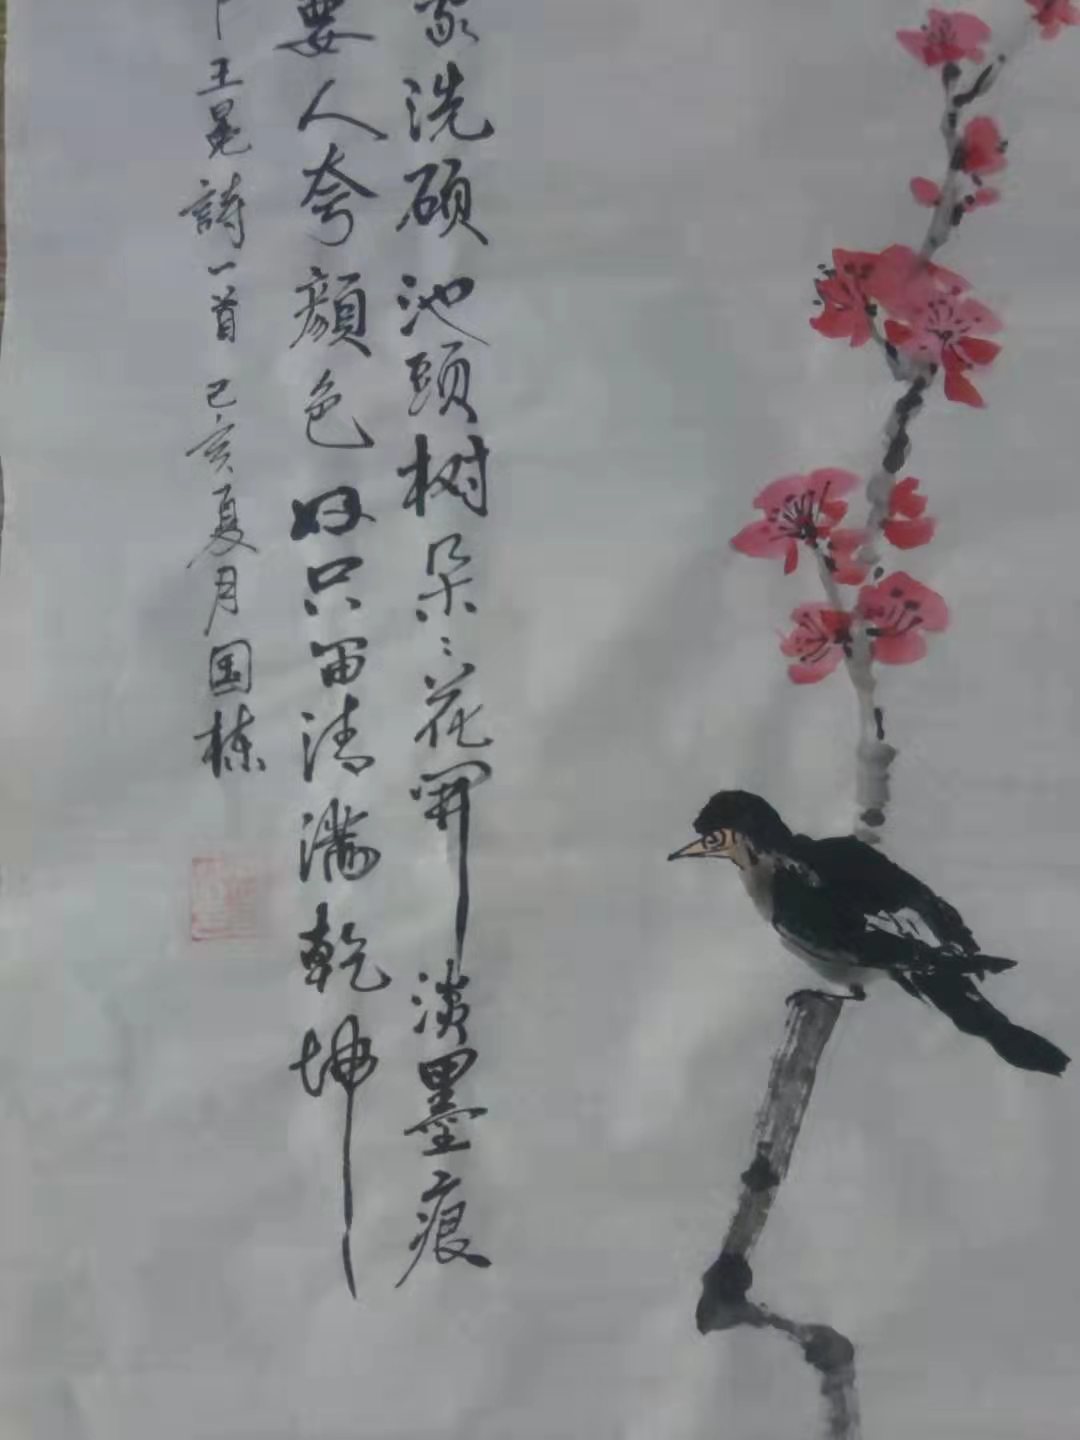 家洗硕池頭树朵〻花開淡墨痕
要人夸顔色好只畄清滿乾坤
王冕詩一首 己亥夏月国栋